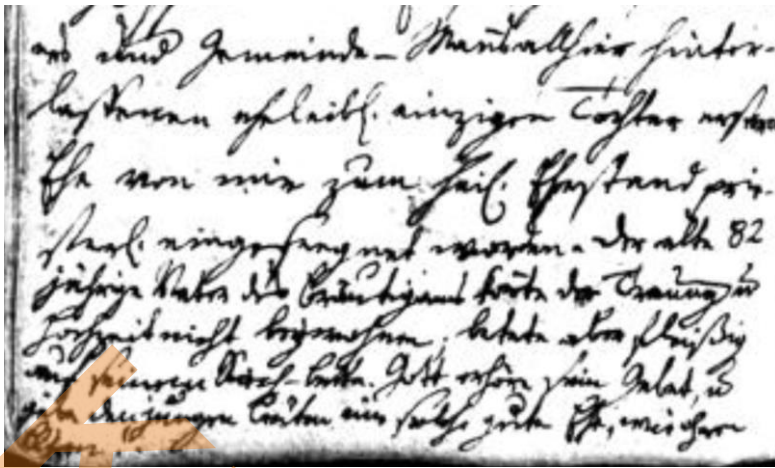 ers und Gemeinde-Manns allhier hinter-
lassenen eheleibl. einzigen Tochter erster
Ehe von mir zum heil. Ehestand prie-
sterl. eingesegnet worden. Der alte 82
jährige Vater des Bräutigams konte der Trauung u
Hochzeit nicht beywohnen, betete aber fleißig
auf seinem Siech-bette. Gott erhöre sein Gebet, u
gebe den jungen Leuten eine solche gute Ehe, wie ihren